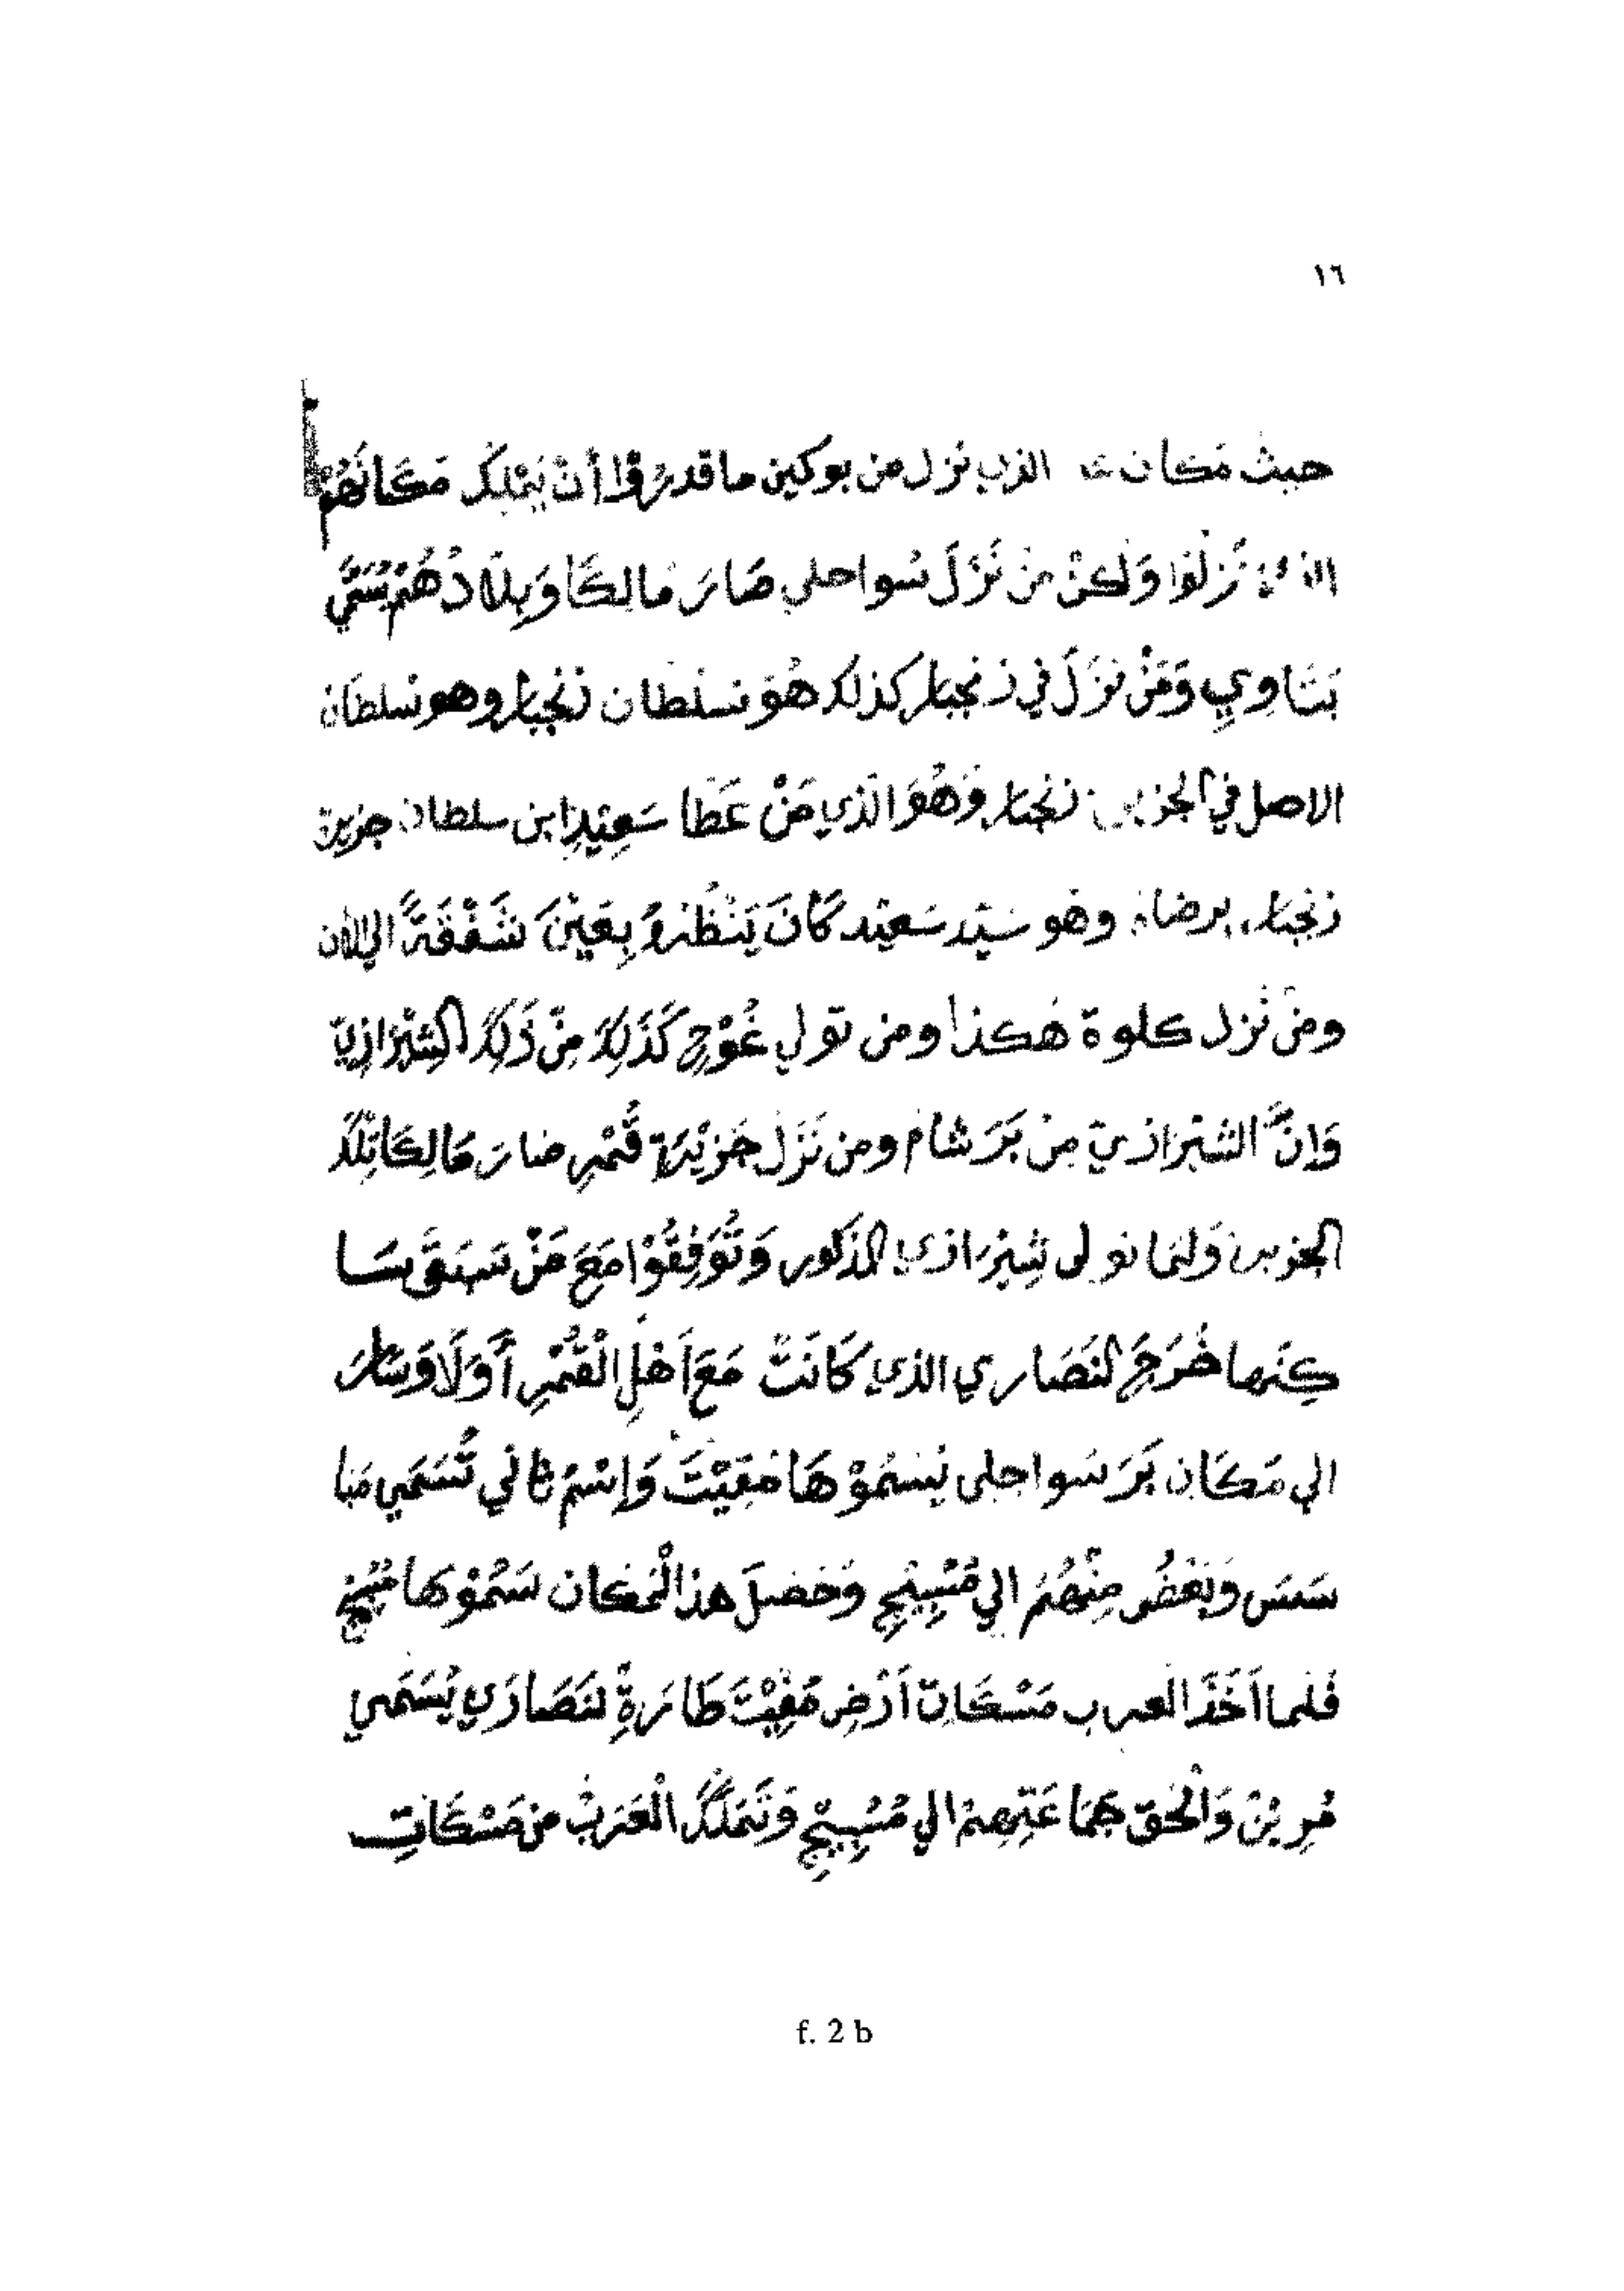 ١٦
حيث مَكان الذي نزل من بوكين ما قدرُوْا أَنْ يَمْلِكُ مَكَانَهُمْ
نَزَلُوْا وَلَكِنْ مَنْ نَزَلَ سُواحلي صَارَ مَالِكًا وَبِلَادُهُمْ يُسَمَّي
وَمَنْ نَزَلَ في زنجبار كذلك هُوَ سلطان زنجبار وهو سلطان
الاصل في زنجبار وَهُوَ الذي مَنْ عَطَا سَعِيْدِ ابن سلطان جزيرة
زنجبار برضاه وهو سَيّد سَعيْد كَانَ يَنْظُرُهُ بِعَيْنَ شَفْقَةً الي الان
ومن نَزل كلوة هَكذا ومن تولي غُوْجِ كَذَلِكَ مِنْ ذَلِكَ الشِيْرَازِيّ
وَاِنَّ الشيرازيّ مِنْ بَرَ شام ومن نَزَلَ جَزِيْرَة قُمْرِ صَارَ مَالِكًا تِلْكَ
وَلما تولى شِيْرَازي المذكور وَتُوَفِقُوْا مَعَ مَنْ
خَرَجَ لنَصَاري الذي كَانَتْ مَعَ اَهْلِ الْقُمْرِ أَوَلًا وَسَارَ
الي مَكَان بَرَ سَواحِلى يُسَمُوْهَا وَاِسْمُ ثاني تُسَمَي
وَبَعْضُ مِنْهُمْ الي مُسَيْبِيْجِ وَحَصَلَ هذا الْمَكان سَمُوْهَا
فَلما اَخَذَ العرب مَسْكَان اَرْضِ لنَصَارَي يُسَمَي
وَالْحَقَ جَمَاعَتِهِمْ الي مُسَيْبِيْجِ وَتَمَلَكَ الْعَرَبُ مِن مَسْكَاتِ
f. 2 b